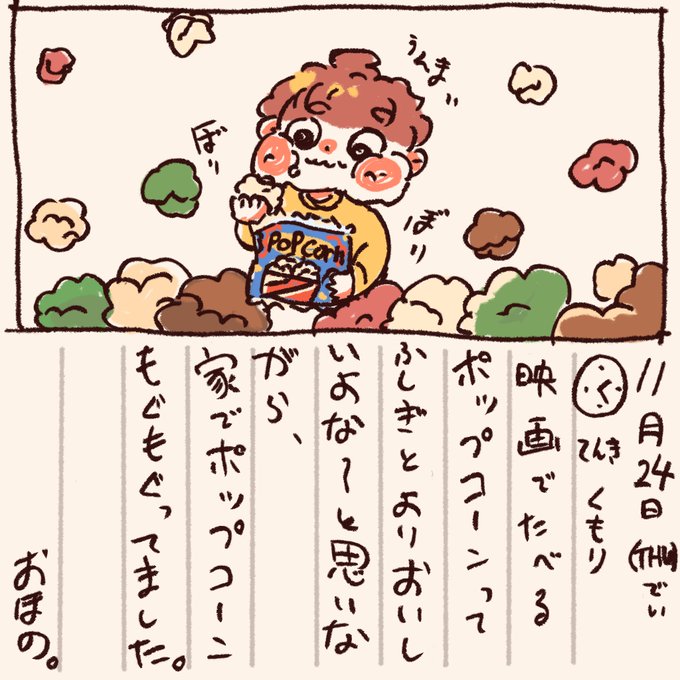 うんまい
ぼり
ぼり
POPCorn
11月24日(THU)でい
く
てんき くもり
映画でたべる
ポップコーンって
ふしぎとよりおいし
いよな〜と思いな
がら、
家でポップコーン
もぐもぐってました。
おほの。